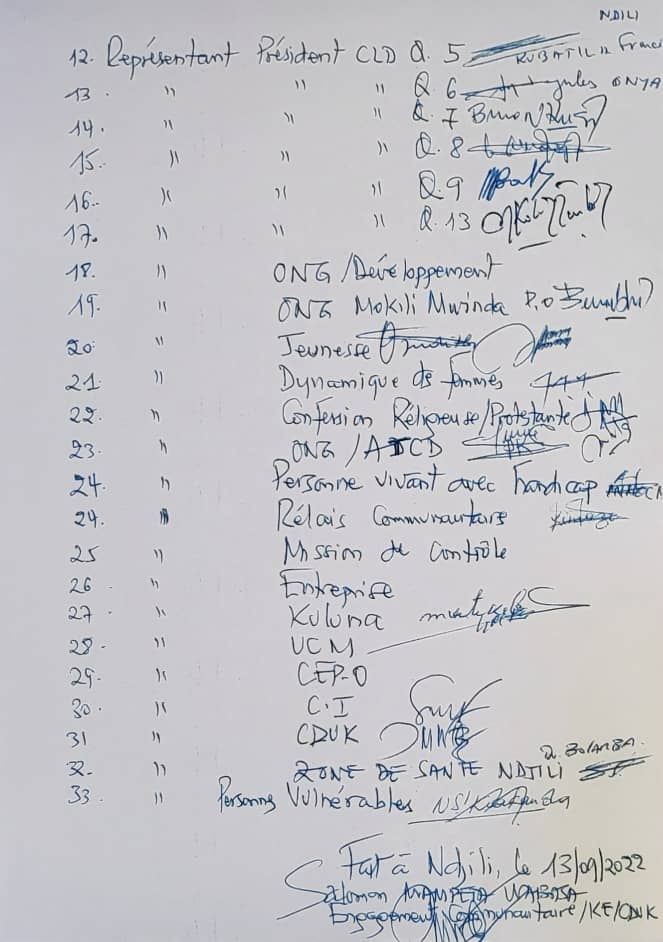 NDILI
12. Représentant Président CLD Q. 5
13. " " " Q. 6 ONYA
14. " " " Q. 7
15. " " " Q. 8
16. " " " Q. 9
17. " " " Q. 13
18. " ONG / Développement
19. " ONG Mokili Mwinda P.o
20. " Jeunesse
21. " Dynamique de femmes
22. " Confession Réligieuse/Protestante
23. " ONG / ATCD
24. " Personne vivant avec handicap
24. " Rélais Communautaire
25 " Mission de Contrôle
26 " Entreprise
27 " Kuluna
28 " UCM
29. " CEP-O
30. " C.I
31 " CDUK
32. " ZONE DE SANTE NDJILI BOLAMBA
33. " Personns Vulnérables
Fait à Ndjili, le 13/09/2022
Salomon
Engagement Communautaire/KE/CDUK